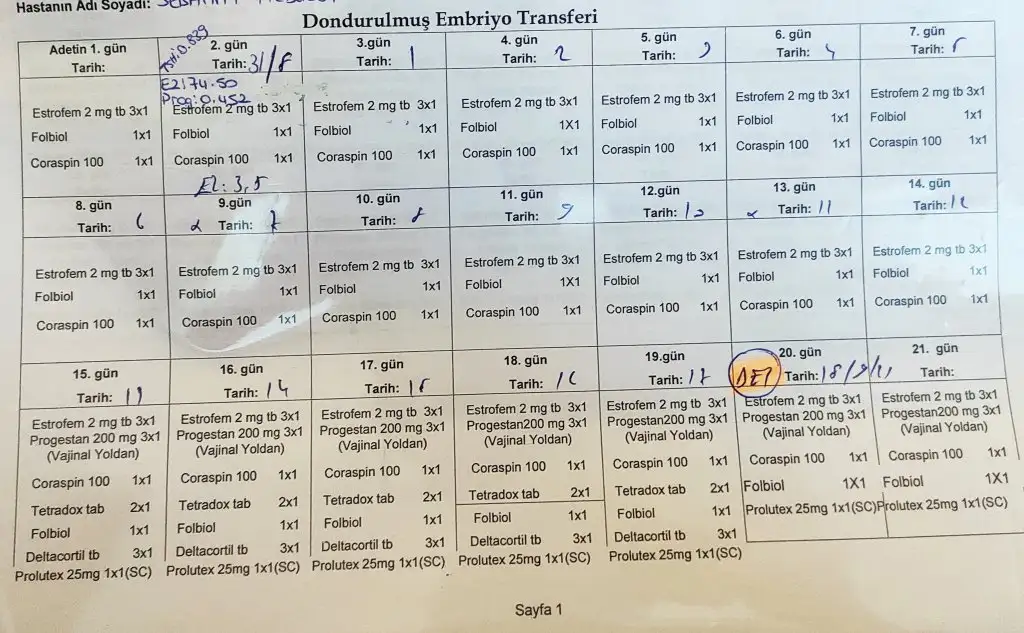 Hastanın Adı Soyadı:
Dondurulmuş Embriyo Transferi
Adetin 1. gün
Tarih:
Estrofem 2 mg tb 3x1
Folbiol 1x1
Coraspin 100 1x1
TSH:0.839
2. gün
Tarih: 31/8
E2:74.50
Prog:0.452
Estrofem 2 mg tb 3x1
Folbiol 1x1
Coraspin 100 1x1
3.gün
Tarih: 1
Estrofem 2 mg tb 3x1
Folbiol 1x1
Coraspin 100 1x1
4. gün
Tarih: 2
Estrofem 2 mg tb 3x1
Folbiol 1X1
Coraspin 100 1x1
5. gün
Tarih: 3
Estrofem 2 mg tb 3x1
Folbiol 1x1
Coraspin 100 1x1
6. gün
Tarih: 4
Estrofem 2 mg tb 3x1
Folbiol 1x1
Coraspin 100 1x1
7. gün
Tarih: 5
Estrofem 2 mg tb 3x1
Folbiol 1x1
Coraspin 100 1x1
8. gün
Tarih: 6
Estrofem 2 mg tb 3x1
Folbiol 1x1
Coraspin 100 1x1
: 3,5
9.gün
Tarih: 7
Estrofem 2 mg tb 3x1
Folbiol 1x1
Coraspin 100 1x1
10. gün
Tarih: 8
Estrofem 2 mg tb 3x1
Folbiol 1x1
Coraspin 100 1x1
11. gün
Tarih: 9
Estrofem 2 mg tb 3x1
Folbiol 1X1
Coraspin 100 1x1
12.gün
Tarih: 10
Estrofem 2 mg tb 3x1
Folbiol 1x1
Coraspin 100 1x1
13. gün
Tarih: 11
Estrofem 2 mg tb 3x1
Folbiol 1x1
Coraspin 100 1x1
14. gün
Tarih: 12
Estrofem 2 mg tb 3x1
Folbiol 1x1
Coraspin 100 1x1
15. gün
Tarih: 13
Estrofem 2 mg tb 3x1
Progestan 200 mg 3x1
(Vajinal Yoldan)
Coraspin 100 1x1
Tetradox tab 2x1
Folbiol 1x1
Deltacortil tb 3x1
Prolutex 25mg 1x1(SC)
16. gün
Tarih: 14
Estrofem 2 mg tb 3x1
Progestan 200 mg 3x1
(Vajinal Yoldan)
Coraspin 100 1x1
Tetradox tab 2x1
Folbiol 1x1
Deltacortil tb 3x1
Prolutex 25mg 1x1(SC)
17. gün
Tarih: 15
Estrofem 2 mg tb 3x1
Progestan 200 mg 3x1
(Vajinal Yoldan)
Coraspin 100 1x1
Tetradox tab 2x1
Folbiol 1x1
Deltacortil tb 3x1
Prolutex 25mg 1x1(SC)
18. gün
Tarih: 16
Estrofem 2 mg tb 3x1
Progestan200 mg 3x1
(Vajinal Yoldan)
Coraspin 100 1x1
Tetradox tab 2x1
Folbiol 1x1
Deltacortil tb 3x1
Prolutex 25mg 1x1(SC)
19.gün
Tarih: 17
Estrofem 2 mg tb 3x1
Progestan200 mg 3x1
(Vajinal Yoldan)
Coraspin 100 1x1
Tetradox tab 2x1
Folbiol 1x1
Deltacortil tb 3x1
Prolutex 25mg 1x1(SC)
20. gün
DET Tarih: 18/9/21
Estrofem 2 mg tb 3x1
Progestan 200 mg 3x1
(Vajinal Yoldan)
Coraspin 100 1x1
Folbiol 1X1
Prolutex 25mg 1x1(SC)
21. gün
Tarih:
Estrofem 2 mg tb 3x1
Progestan200 mg 3x1
(Vajinal Yoldan)
Coraspin 100 1x1
Folbiol 1X1
Prolutex 25mg 1x1(SC)
Sayfa 1